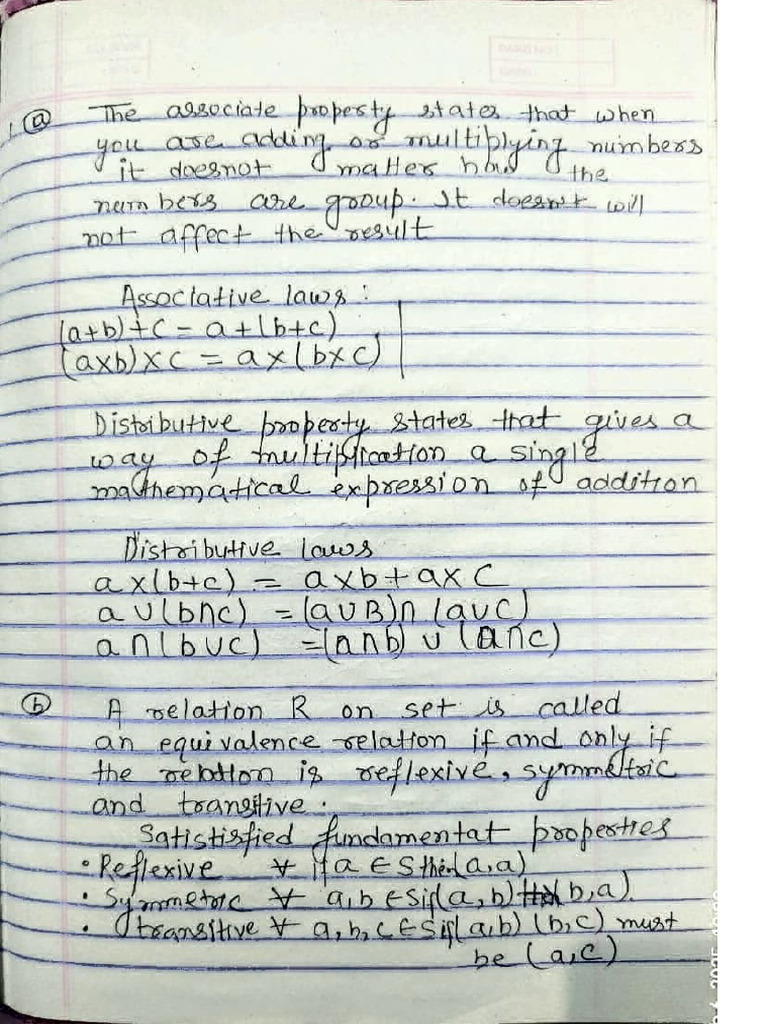 1 (a) The associate property states that when
you are adding or multiplying numbers
it doesnot matter how the
numbers are group. It doesn't will
not affect the result
Associative laws :
(a+b)+c = a+(b+c)
(axb)xc = ax(bxc)
Distributive property states that gives a
way of multiplication a single
mathematical expression of addition
Distributive laws
ax(b+c) = axb+axc
a∪(b∩c) = (a∪B)∩(a∪c)
a∩(b∪c) =(a∩b) ∪ (a∩c)
(b) A relation R on set is called
an equivalence relation if and only if
the relation is reflexive, symmetric
and transitive.
Satistisfied fundamentat properties
• Reflexive ∀ if a ∈ S then (a,a)
• Symmetric ∀ a,b ∈ S if (a,b) (b,a).
• transitive ∀ a,b,c ∈ S if (a,b) (b,c) must
be (a,c)